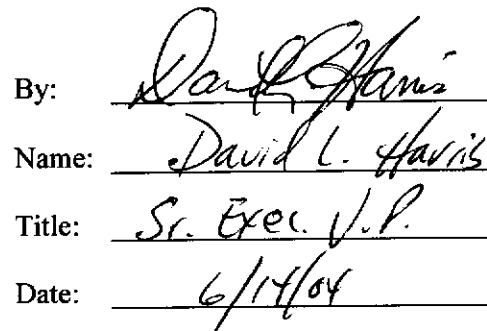 By: David L. Harris
Name: David L. Harris
Title: Sr. Exec. V.P.
Date: 6/14/04